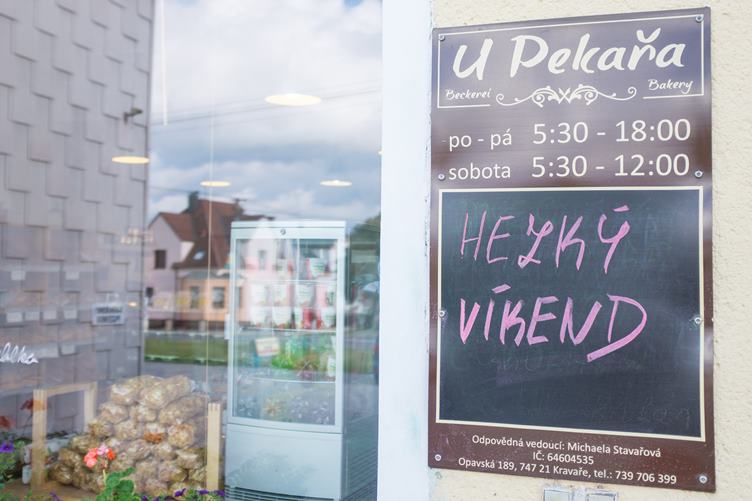 U Pekařa
Beckerei
Bakery
po - pá 5:30 - 18:00
sobota 5:30 - 12:00
HEZKÝ
VÍKEND
Odpovědná vedoucí: Michaela Stavařová
IČ: 64604535
Opavská 189, 747 21 Kravaře, tel.: 739 706 399